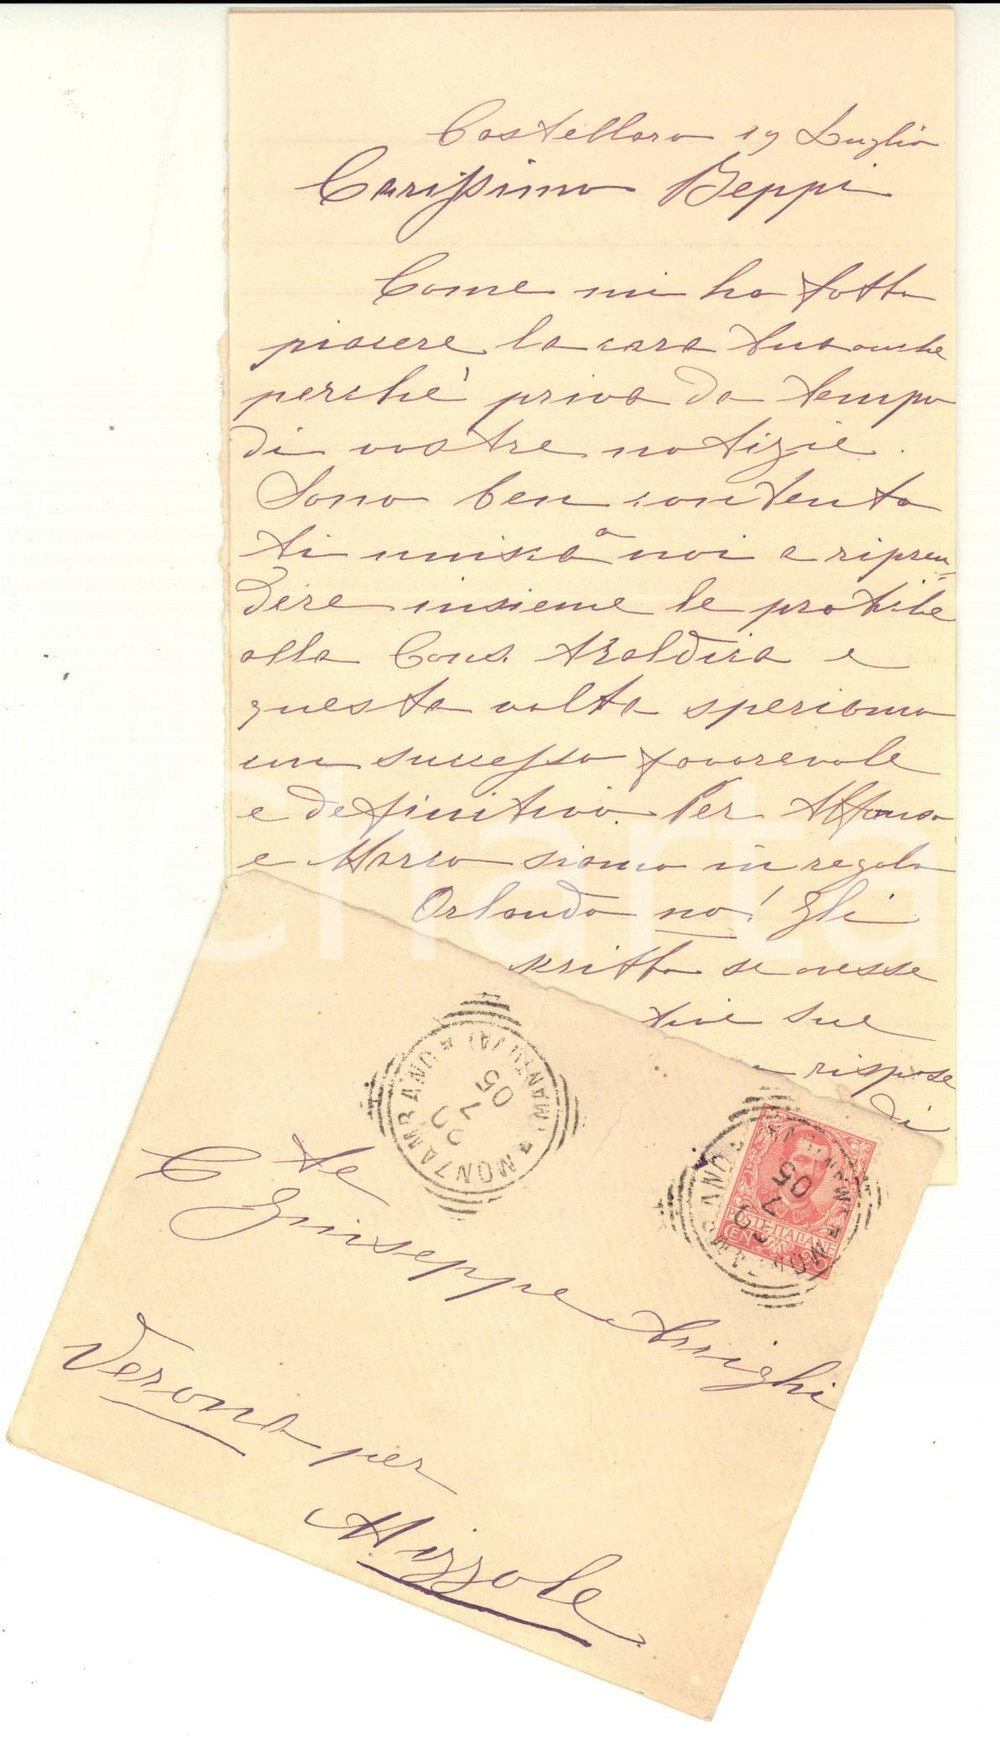 Castellaro 19 Luglio
Carissimo Beppi
Come mi ha fatto
piacere la cara tua anche
perchè priva da tempo
di vostre notizie.
Sono ben contenta
ti unisca a noi a ripren=
dere insieme le pratiche
alla Cons. Araldica e
questa volta speriamo
un successo favorevole
e definitivo. Per Alfonso
e Marco siamo in regola
Orlando no! Gli
scritto se avesse
tive sue
rispose
di
MONZAMBANO (MANTOVA)
05
POSTE ITALIANE
CENT. 10
MONZAMBANO (MANTOVA)
05
C.te
Giuseppe Arrighi
Verona per
Mizzole
Charta